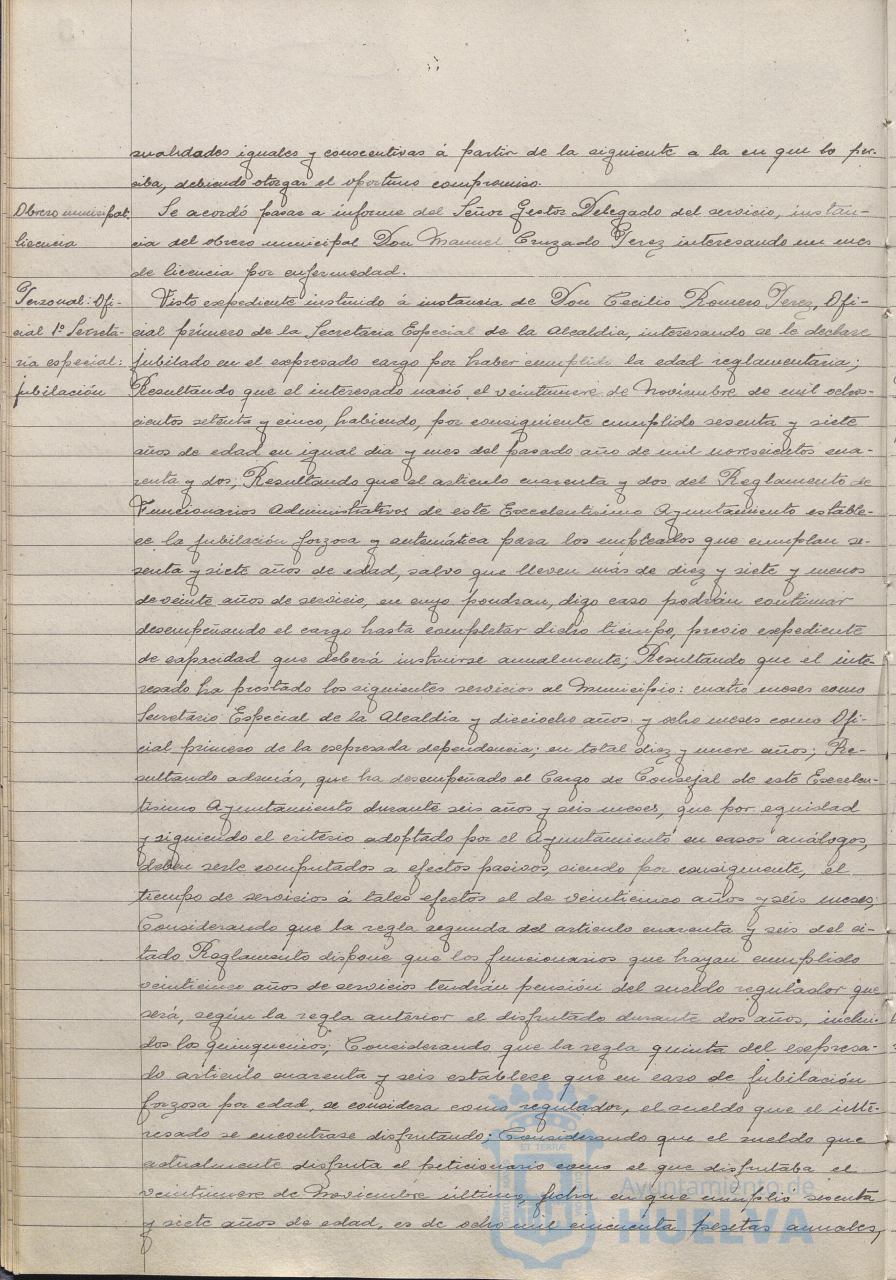 sualidades iguales y consecutivas á partir de la siguiente a la en que lo per-
ciba, debiendo otorgar el oportuno compromiso.
Obrero municipal:
licencia
Se acordó pasar a informe del Señor Gestor Delegado del servicio, instan-
cia del obrero municipal Don Manuel Cruzado Perez interesando un mes
de licencia por enfermedad.
Personal: Ofi-
cial 1º Secreta-
ría especial:
jubilación
Visto expediente instruido á instancia de Don Cecilio Romero Perez, Ofi-
cial primero de la Secretaria Especial de la Alcaldia, interesando se le declare
jubilado en el expresado cargo por haber cumplido la edad reglamentaria;
Resultando que el interesado nació el veintinueve de Noviembre de mil ochos-
cientos setenta y cinco, habiendo, por consiguiente cumplido sesenta y siete
años de edad en igual dia y mes del pasado año de mil novescientos cua-
renta y dos; Resultando que el articulo cuarenta y dos del Reglamento de
Funcionarios Administrativos de este Excelentisimo Ayuntamiento estable-
ce la jubilación forzosa y automática para los empleados que cumplan se-
senta y siete años de edad, salvo que lleven más de diez y siete y menos
de veinte años de servicio, en cuyo pondran, digo caso podrán continuar
desempeñando el cargo hasta completar dicho tiempo, previo expediente
de capacidad que deberá instruirse anualmente; Resultando que el inte-
resado ha prestado los siguientes servicios al Municipio: cuatro meses como
Secretario Especial de la Alcaldia y dieciocho años y ocho meses como Ofi-
cial primero de la expresada dependencia; en total diez y nueve años; Re-
sultando además, que ha desempeñado el Cargo de Consejal de este Excelen-
tisimo Ayuntamiento durante seis años y seis meses, que por equidad
y siguiendo el criterio adoptado por el Ayuntamiento en casos análogos,
deben serle computados a efectos pasivos, siendo por consiguiente, el
tiempo de servicios á tales efectos el de veinticinco años y seis meses;
Considerando que la regla segunda del articulo cuarenta y seis del ci-
tado Reglamento dispone que los funcionarios que hayan cumplido
veinticinco años de servicios tendrán pensión del sueldo regulador que
será, según la regla anterior el disfrutado durante dos años, inclui-
dos los quinquenios; Considerando que la regla quinta del expresa-
do articulo cuarenta y seis establece que en caso de jubilación
forzosa por edad, se considera como regulador, el sueldo que el inte-
resado se encontrase disfrutando; Considerando que el sueldo que
actualmente disfruta el peticionario como el que disfrutaba el
veintinueve de Noviembre último, fecha en que cumplió sesenta
y siete años de edad, es de ocho mil cincuenta pesetas anuales,
Ayuntamiento de
HUELVA